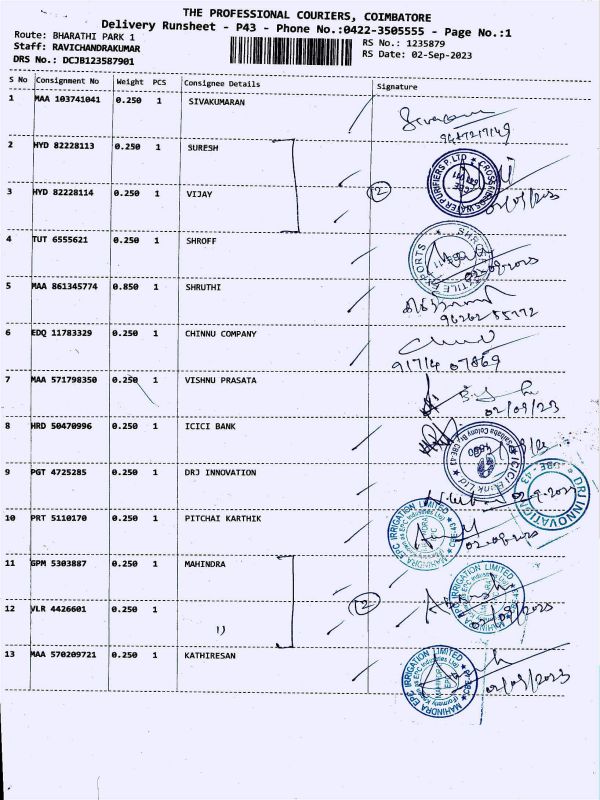 THE PROFESSIONAL COURIERS, COIMBATORE
Delivery Runsheet - P43 - Phone No.:0422-3505555 - Page No.:1
Route: BHARATHI PARK 1
Staff: RAVICHANDRAKUMAR
DRS No.: DCJB123587901
RS No.: 1235879
RS Date: 02-Sep-2023
S No Consignment No Weight PCS Consignee Details Signature
1 MAA 103741041 0.250 1 SIVAKUMARAN
2 HYD 82228113 0.250 1 SURESH
3 HYD 82228114 0.250 1 VIJAY
2
02/09/2023
4 TUT 6555621 0.250 1 SHROFF
02/09/2023
5 MAA 861345774 0.850 1 SHRUTHI
96262 55772
6 EDQ 11783329 0.250 1 CHINNU COMPANY
91714 07869
7 MAA 571798350 0.250 1 VISHNU PRASATA
02/09/23
8 HRD 50470996 0.250 1 ICICI BANK
ICICI Bank Ltd
9 PGT 4725285 0.250 1 DRJ INNOVATION
02-9-2023
DRJ INNOVATION
CBE - 43
10 PRT 5110170 0.250 1 PITCHAI KARTHIK
MAHINDRA EPC IRRIGATION LIMITED
02-09-2023
11 GPM 5303887 0.250 1 MAHINDRA
12 VLR 4426601 0.250 1 ,,
2
MAHINDRA EPC IRRIGATION LIMITED
02/09/2023
13 MAA 570209721 0.250 1 KATHIRESAN
MAHINDRA EPC IRRIGATION LIMITED
02/09/2023